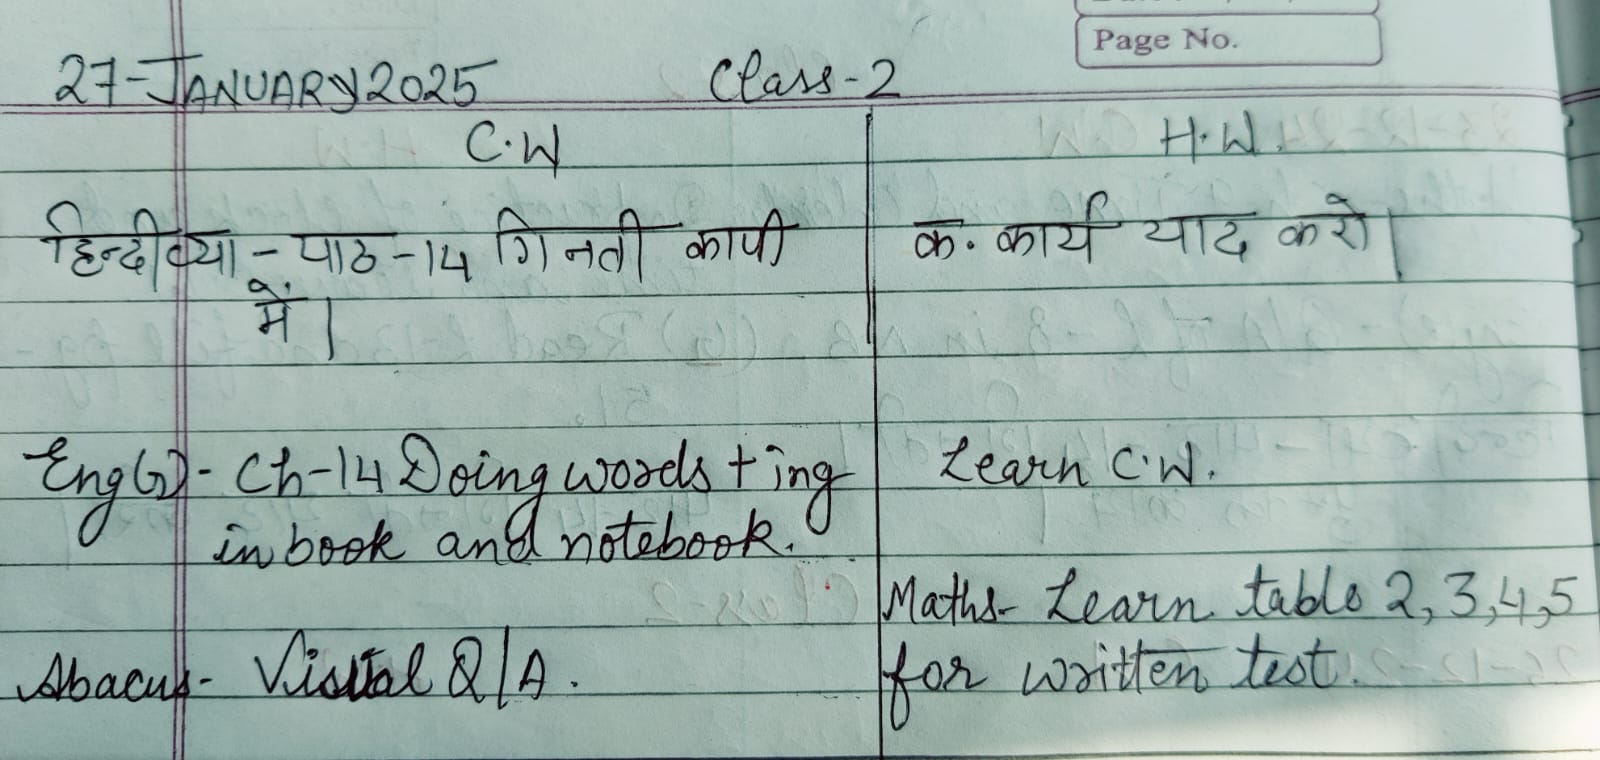 Page No.
27-JANUARY 2025 Class-2
C.W H.W.
हिन्दी व्या - पाठ-14 गिनती कापी क. कार्य याद करो।
में।
Eng(G)- Ch-14 Doing words + ing Learn C.W.
in book and notebook.
Maths- Learn table 2,3,4,5
Abacus- Visual Q/A. for written test.